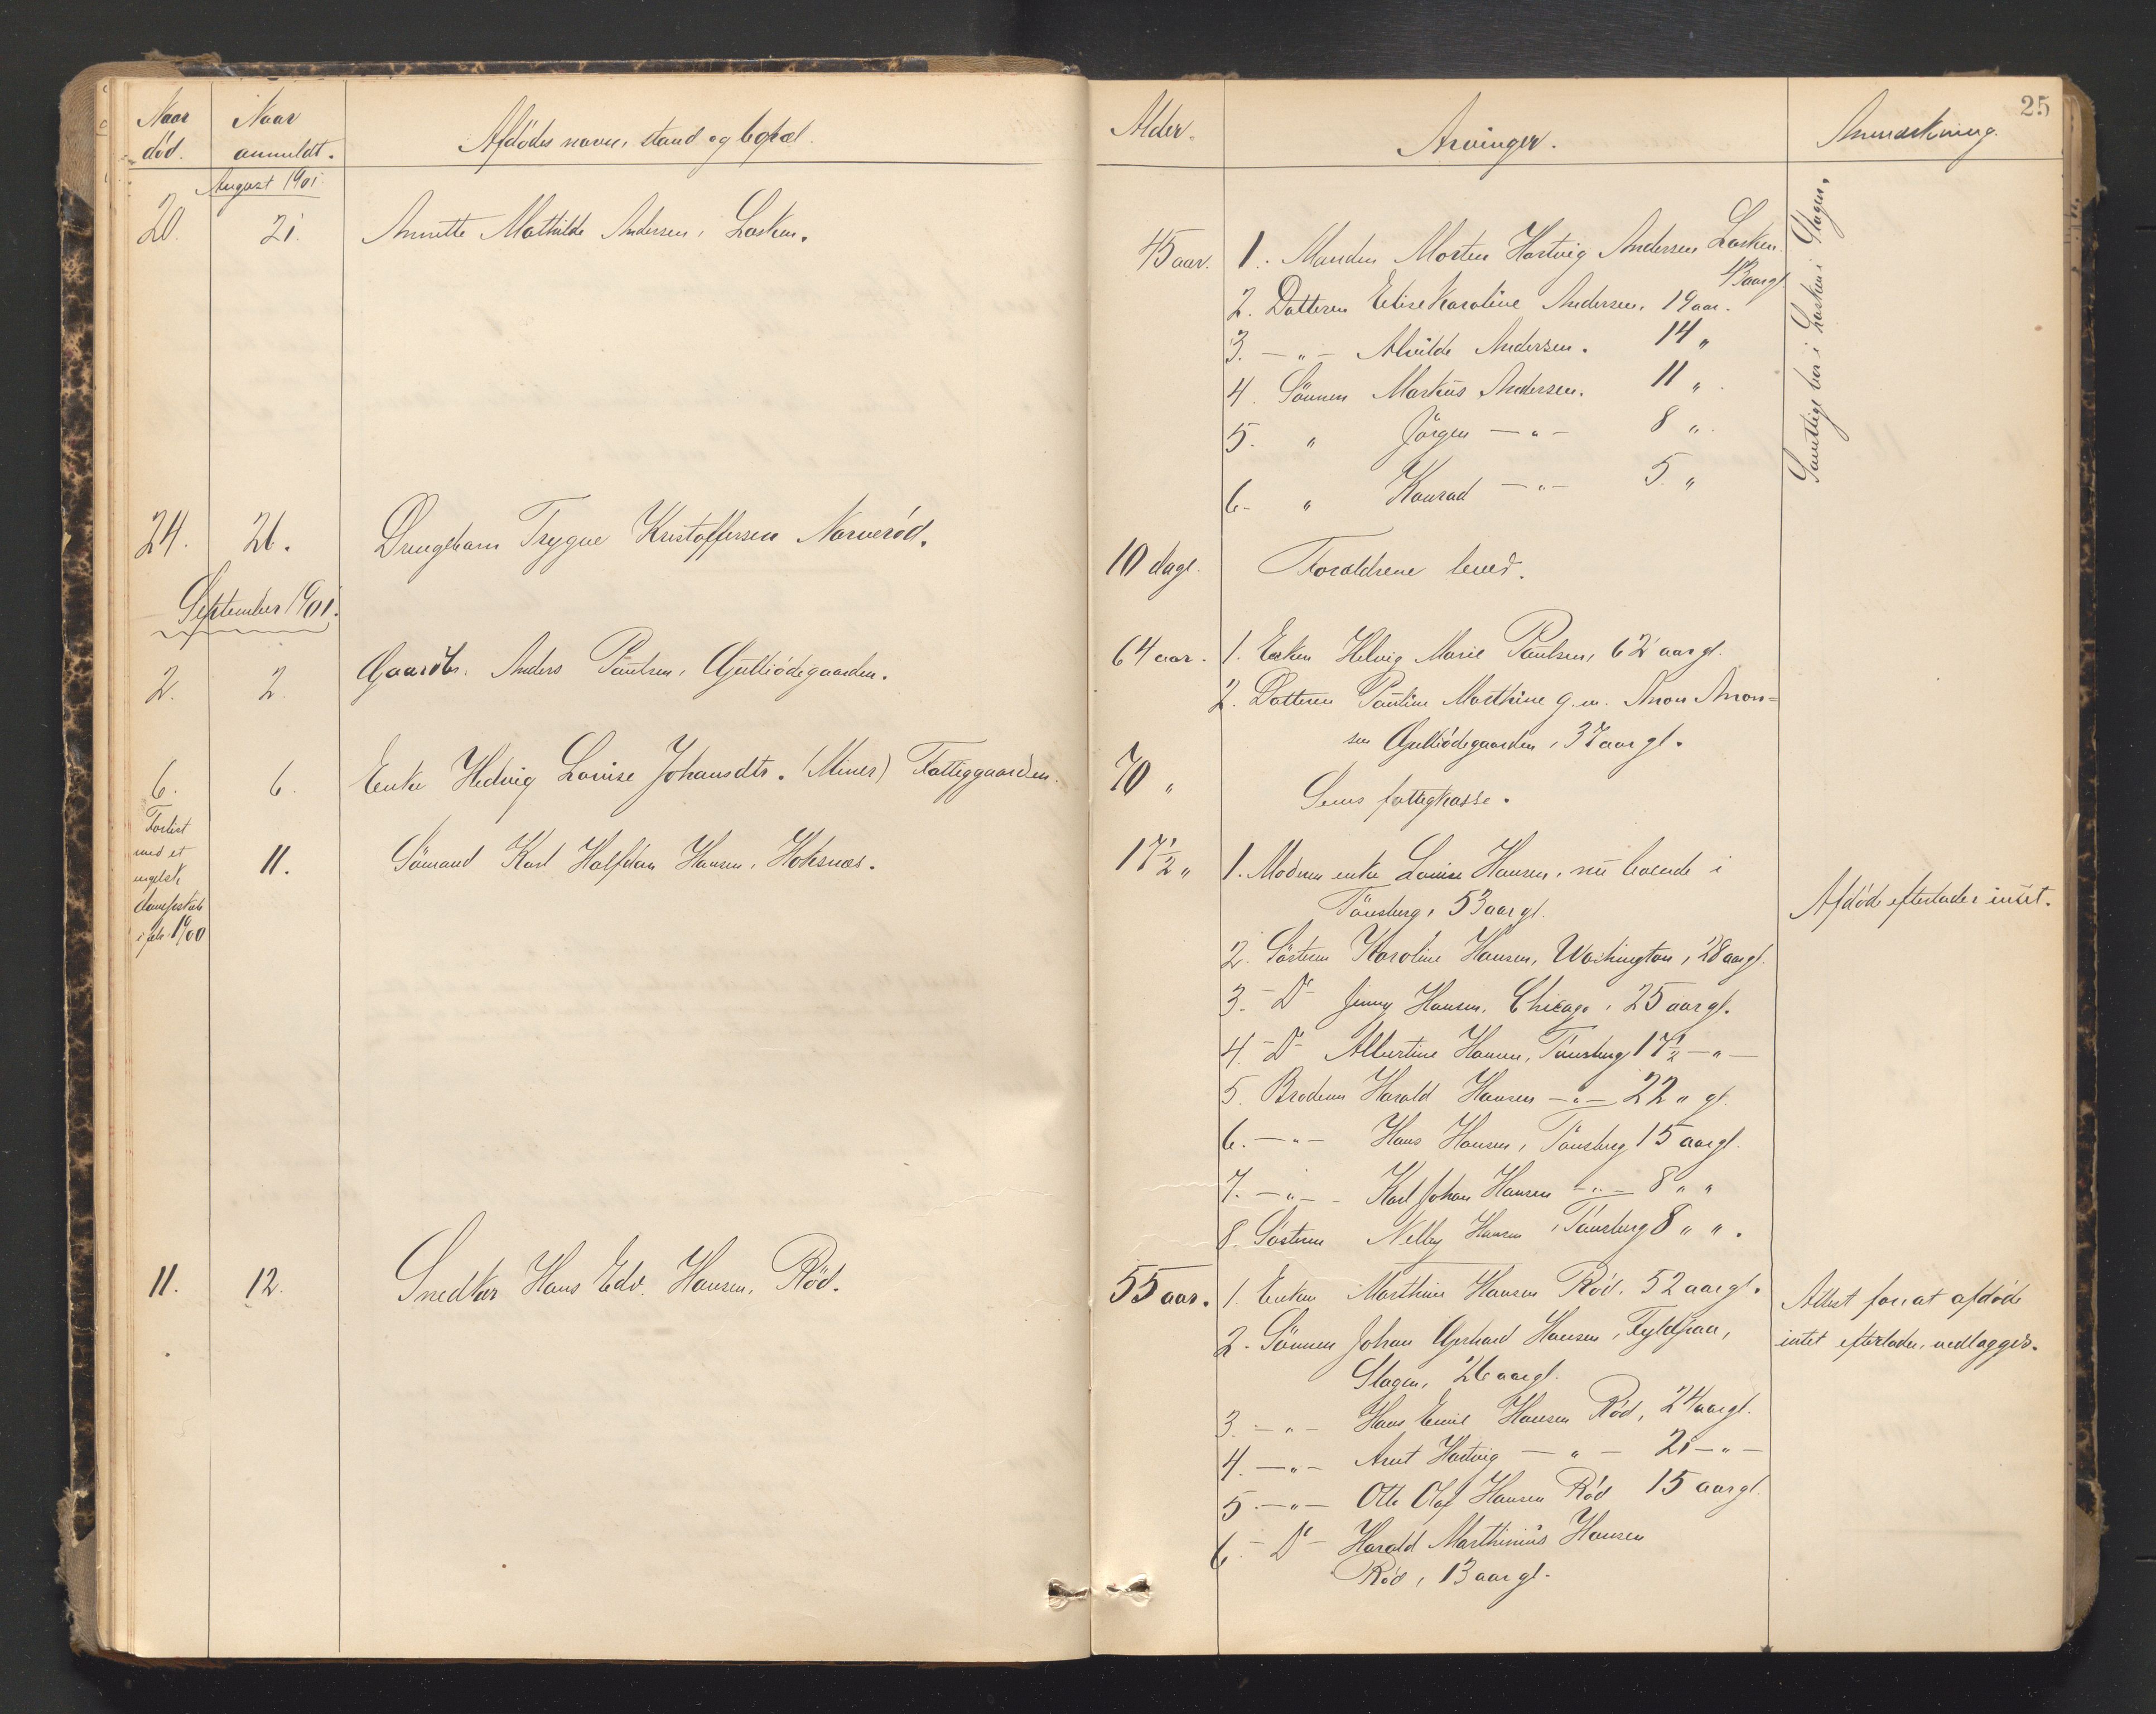 Naar
død.
Naar
anmeldt.
Afdödes navn, stand og bopæl.
August 1901.
20.
21.
Annette Mathilde Andersen, Lasken.
24.
26.
Drengebarn Trygve Kristoffersen Narveröd.
September 1901.
2.
2.
Gaardbr. Anders Paulsen, Gulliödegaarden.
6.
6.
Enke Hedvig Lovise Johansdtr. (Miner) Fattiggaarden.
Forlist
med et
engelsk
dampskib
i febr. 1900
11.
Sömand Karl Halfdan Hansen, Hoksnæs.
11.
12.
Snedker Hans Edv. Hansen, Röd.
25
Alder.
Arvinger.
Anmærkning.
45 aar.
1. Manden Morten Hartvig Andersen Lasken.
43 aar gl.
2. Datteren Elise Karoline Andersen, 19 aar.
3. — „ — Alvilde Andersen. 14 „
4. Sönnen Markus Andersen. 11 „
5. „ Jörgen — „ — 8 „
6. „ Konrad — „ — 5. „
Samtlige bor i Lasken i Slagen.
10 dage.
Forældrene lever.
64 aar.
1. Enken Helvig Marie Paulsen, 62 aar gl.
2. Datteren Pauline Marthine g. m. Anon Anon=
sen Gulliödegaarden, 37 aar gl.
70 „
Sems fattigkasse.
17½ „
1. Moderen enke Lovise Hansen, nu boende i
Tönsberg, 53 aar gl.
Afdöde efterlader intet.
2. Sösteren Karoline Hansen, Washington, 28 aar gl.
3. — Do — Jenny Hansen, Chicago, 25 aar gl.
4. — Do — Albertine Hansen, Tönsberg 17½ — „ —
5. Broderen Harald Hansen — „ — 22 „ gl.
6. — „ — Hans Hansen, Tönsberg 15 aar gl.
7. — „ — Karl Johan Hansen — „ — 8 „ „
8. Sösteren Nelly Hansen, Tönsberg 8 „ „.
55 aar.
1. Enken Marthine Hansen Röd, 52 aar gl.
Attest for at afdöde
2. Sönnen Johan Gerhard Hansen, Fyldpaa,
intet efterlader, vedlægges.
Slagen, 26 aar gl.
3. — „ — Hans Emil Hansen Röd, 24 aar gl.
4. — „ — Arnt Hartvig — „ — 21 — „ —
5. — „ — Otto Olaf Hansen Röd 15 aar gl.
6. — Do — Harald Marthinius Hansen
Röd, 13 aar gl.